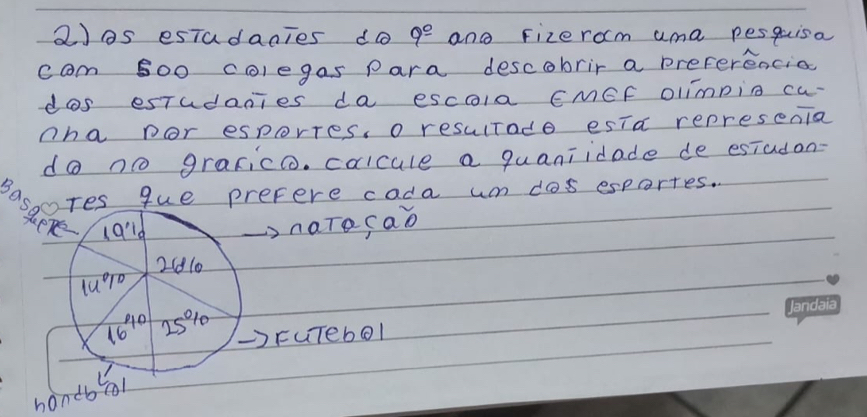 2) os estudantes do 9º ano fizeram uma pesquisa
com 500 colegas para descobrir a preferência
dos estudantes da escola EMEF Olímpio cu-
nha por esportes. o resultado está representa
do no grafico. calcule a quantidade de estudan-
tes que prefere cada um dos esportes..
Basquete
19%
→ natação
26%
14%
16%
25%
→ Futebol
handbol
Jandaia